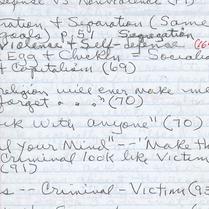 efense vs Nonviolence (P1)
ration & Separation (Same
goals) p. 51 Segregation
Violence + Self-defense (69
Egg + Chicken = Socialis
+ Capitalism (69)
religion will ever make me
forget . . ." (70)
rk with anyone" (70)
of Your Mind" -- "Make the
Criminal look like Victim
(91)
s -- Criminal - Victim (93